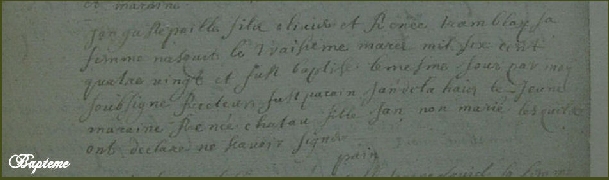 et maraine
fils olivier et Renée tramblay sa
femme nasquit le traisieme mars mil six cent
quatre vingt et fust baptisé le mesme jour par moy
soubsigné Recteur fust parain jan de la haies le jeune
maraine Renée chatau fille jan non marié lesquels
ont declare ne scavoir signer
Bapteme